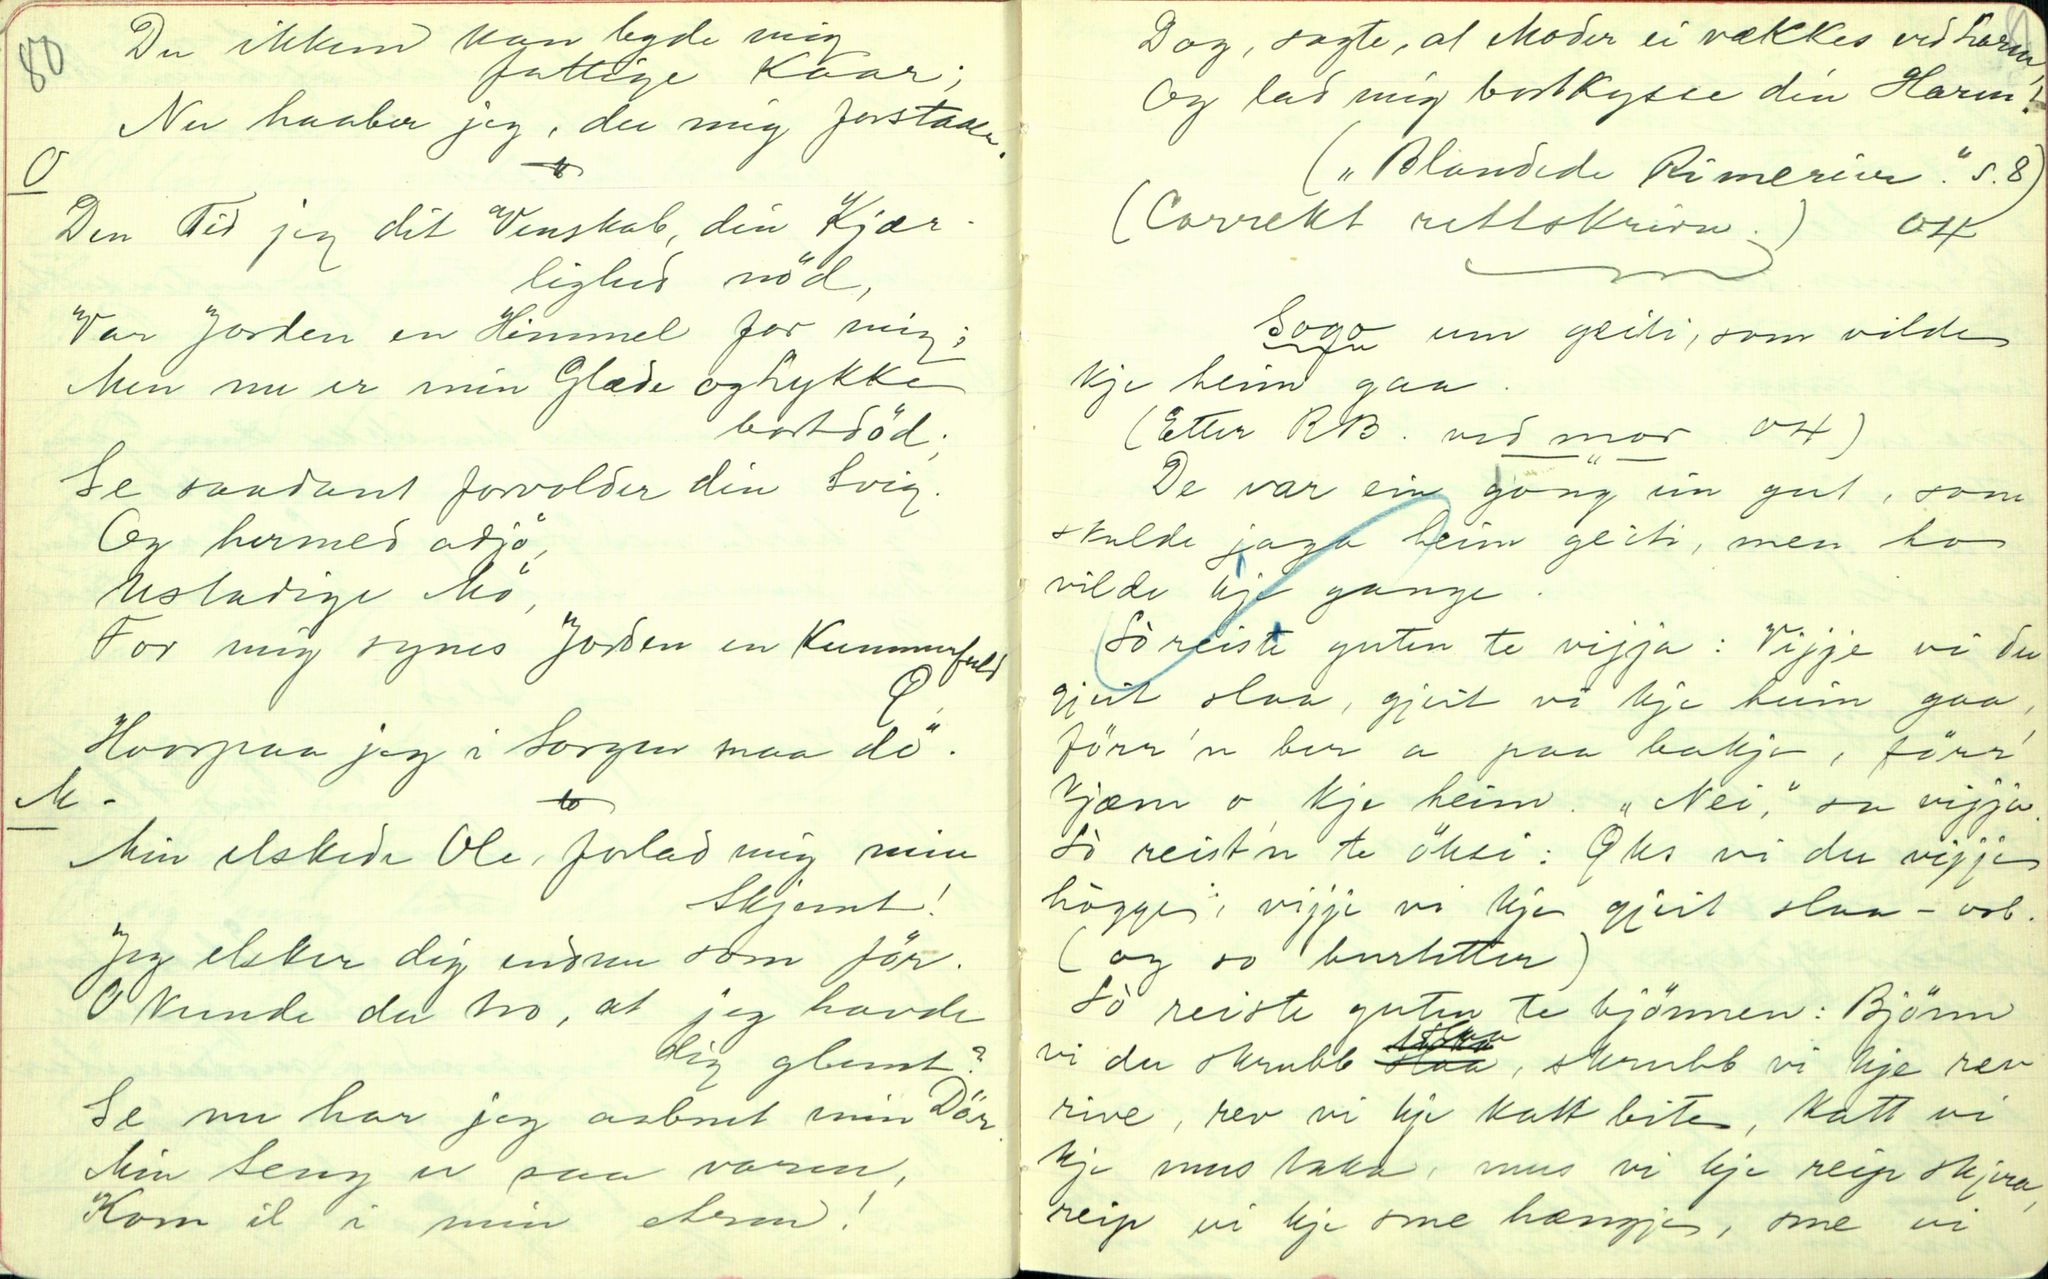 80
Du ikkun kan byde mig
fattige Kaar;
Nu haaber jeg, du mig forstaaer.
O
Den Tid jeg dit Venskab, din Kjær-
lighed nöd,
Var Jorden en Himmel for mig;
Men nu er min Glæde og Lykke
bortdöd;
Se saadant forvolder din Svig.
Og hermed adjö,
Ustadige Mö,
For mig synes Jorden en Kummerfuld
Ö,
Hvorpaa jeg i Sorgen maa dö.
M -
Min elskede Ole, forlad mig min
Skjemt!
Jeg elsker dig endnu som för.
O kunde du tro, at jeg havde
dig glemt?
Se nu har jeg aabnet min Dör.
Min Seng er saa varm,
Kom il i min Arm!
Dog, sagte, at Moder ei vækkes ved Larm,
Og lad mig bortkysse din Harm!
("Blandede Rimerier." s. 8)
(Correkt rettskrivn.) OH
Soga um geiti, som vilde
kje heim gaa.
(Etter RB. ved mor OH)
De var ein gong ein gut, som
skulde jaga heim geiti, men ho
vilde kje gange.
Sò reiste guten te vijja: Vijje vi du
gjeit slaa, gjeit vi kje heim gaa,
förr'n ber a paa bakje, förr'
kjæm o kje heim. "Nei," sa vijja.
Sò reist'n te öksi: Öks vi du vijje
hògge, vijje vi kje gjeit slaa - osb.
(og so burtetter)
Sò reiste guten te bjönnen: Bjönn
vi du skrubb slaa, skrubb vi kje rev
rive, rev vi kje katt bite, katt vi
kje mus taka, mus vi kje reip skjera,
reip vi kje sme hængje, sme vi